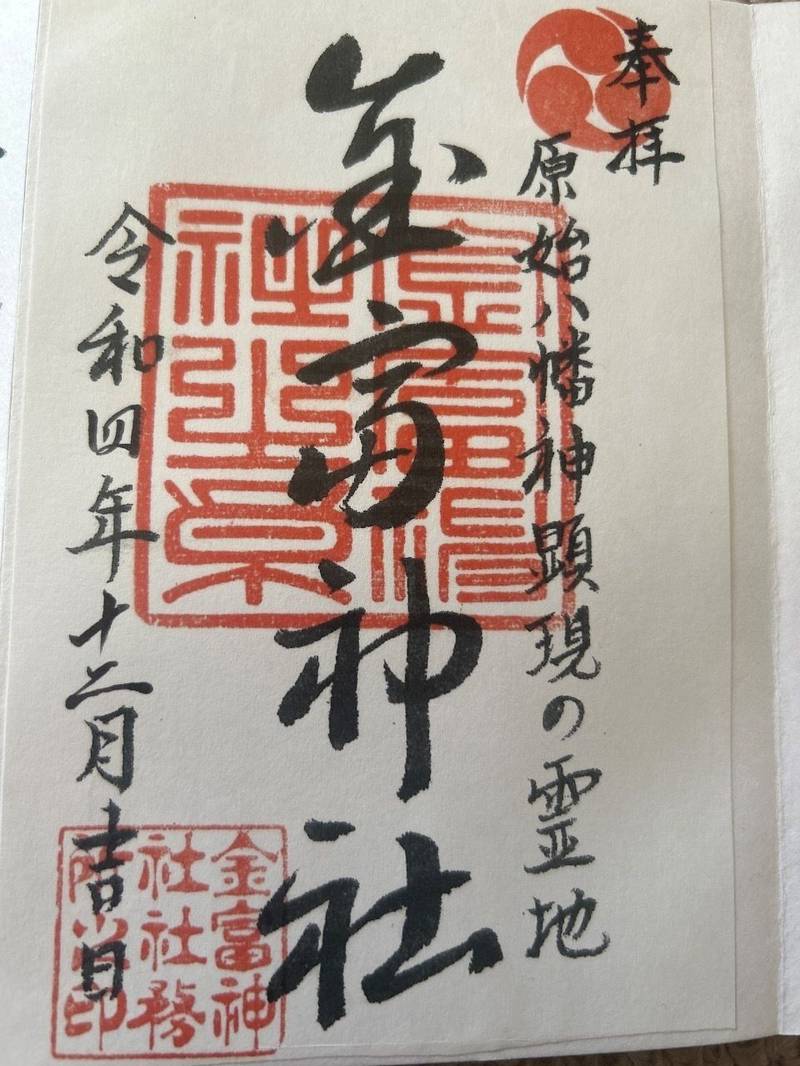 奉拝
原始八幡神顕現の霊地
金富神社
令和四年十二月吉日
金富神
社社務
所之印